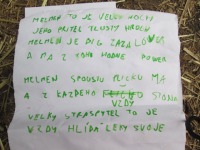 MELMEN TO JE VELKEJ HOCH
JEHO PŘÍTEL TLUSTEJ HROCH
MELMEN JE DIG ZAZA LOVER
A MÁ Z TOHO HODNĚ POWER
MELMEN SPOUSTU FLÍČKŮ MÁ
A Z KAŽDÉHO
VŽDY STONÁ
VELKÝ STRAŠPYTEL TO JE
VŽDY HLÍDÁ LÉKY SVOJE